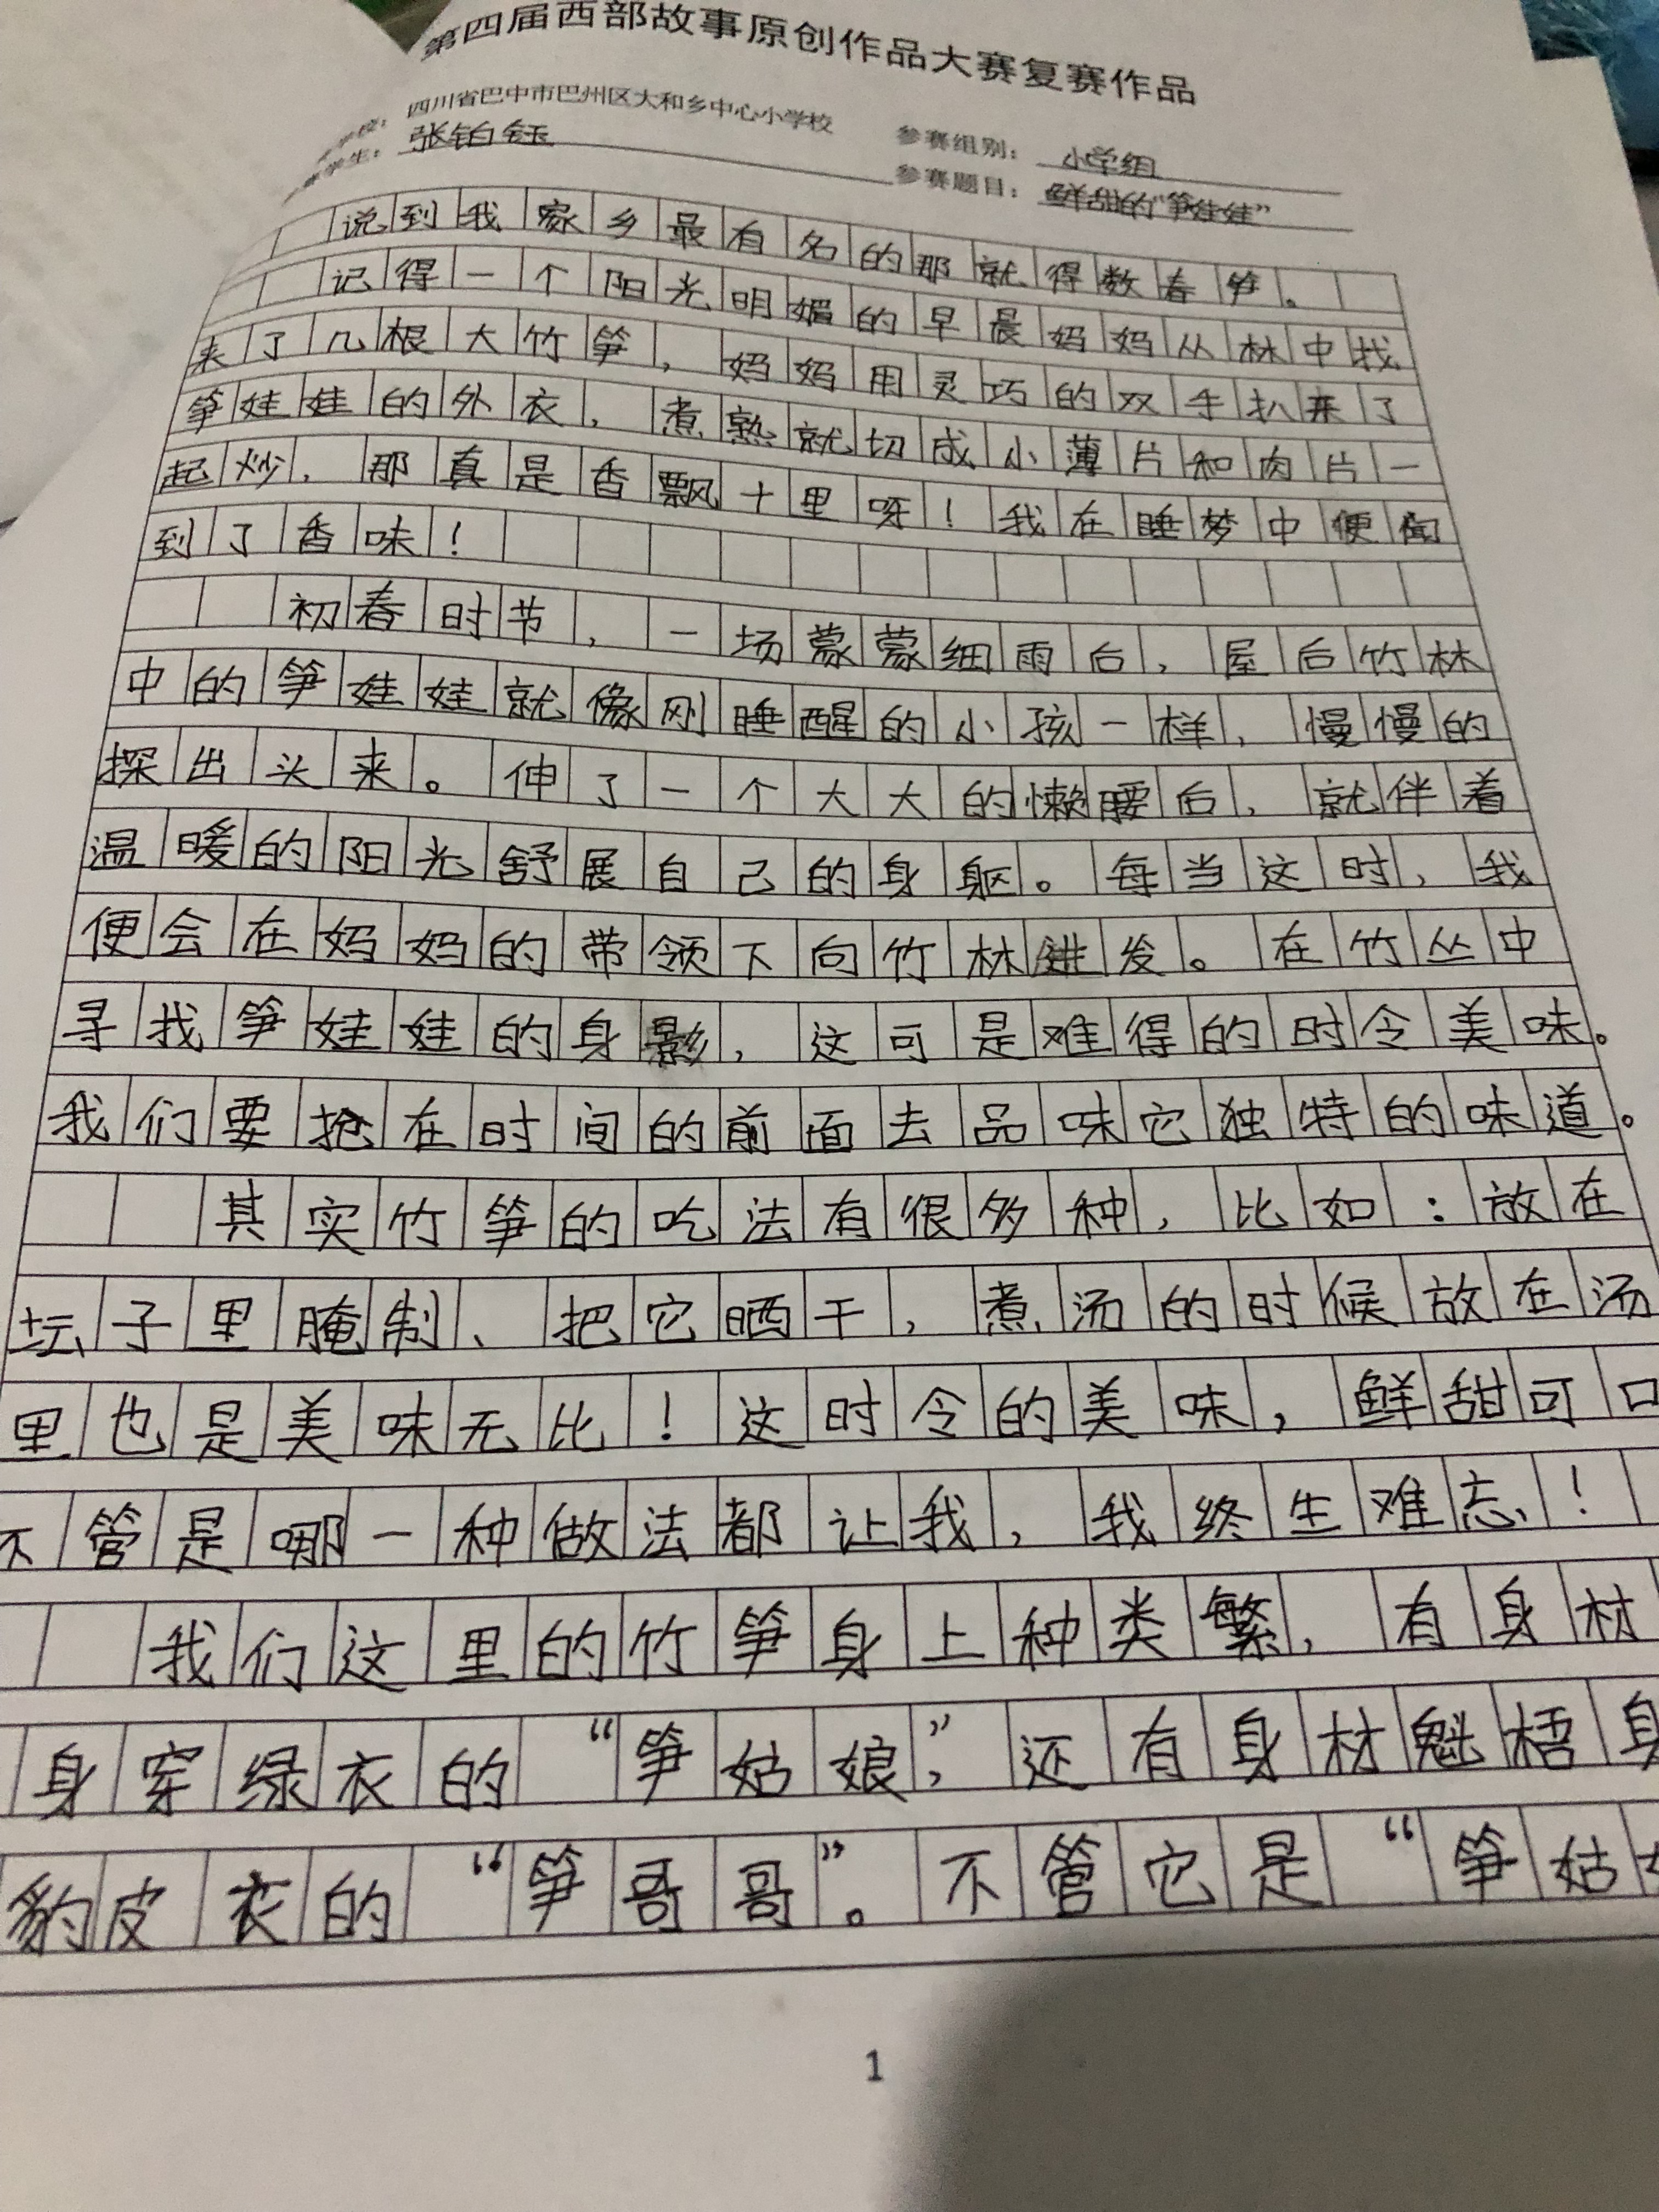 第四届西部故事原创作品大赛复赛作品
学校：四川省巴中市巴州区大和乡中心小学校 参赛组别：小学组
学生：张铂钰 参赛题目：鲜甜的“笋娃娃”
说到我家乡最有名的那就得数春笋。
记得一个阳光明媚的早晨妈妈从林中找
来了几根大竹笋，妈妈用灵巧的双手扒来了
笋娃娃的外衣，煮熟就切成小薄片和肉片一
起炒，那真是香飘十里呀！我在睡梦中便闻
到了香味！
初春时节，一场蒙蒙细雨后，屋后竹林
中的笋娃娃就像刚睡醒的小孩一样，慢慢的
探出头来。伸了一个大大的懒腰后，就伴着
温暖的阳光舒展自己的身躯。每当这时，我
便会在妈妈的带领下向竹林进发。在竹丛中
寻找笋娃娃的身影，这可是难得的时令美味。
我们要抢在时间的前面去品味它独特的味道。
其实竹笋的吃法有很多种，比如：放在
坛子里腌制、把它晒干，煮汤的时候放在汤
里也是美味无比！这时令的美味，鲜甜可口
不管是哪一种做法都让我，我终生难忘！
我们这里的竹笋身上种类繁，有身材
身穿绿衣的“笋姑娘”，还有身材魁梧身
豹皮衣的“笋哥哥”。不管它是“笋姑
1